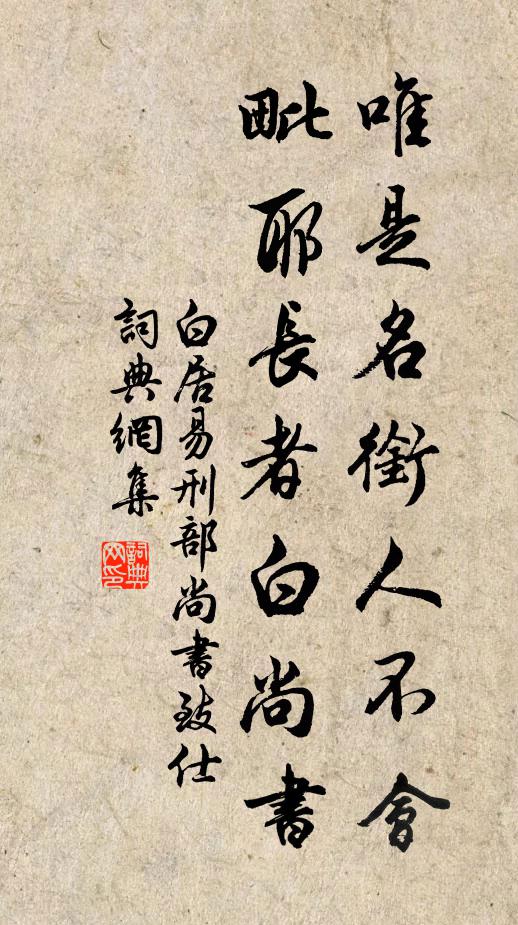 唯是名銜人不會
毗耶長者白尚書
白居易刑部尚書致仕
詞典網集
詞典網印